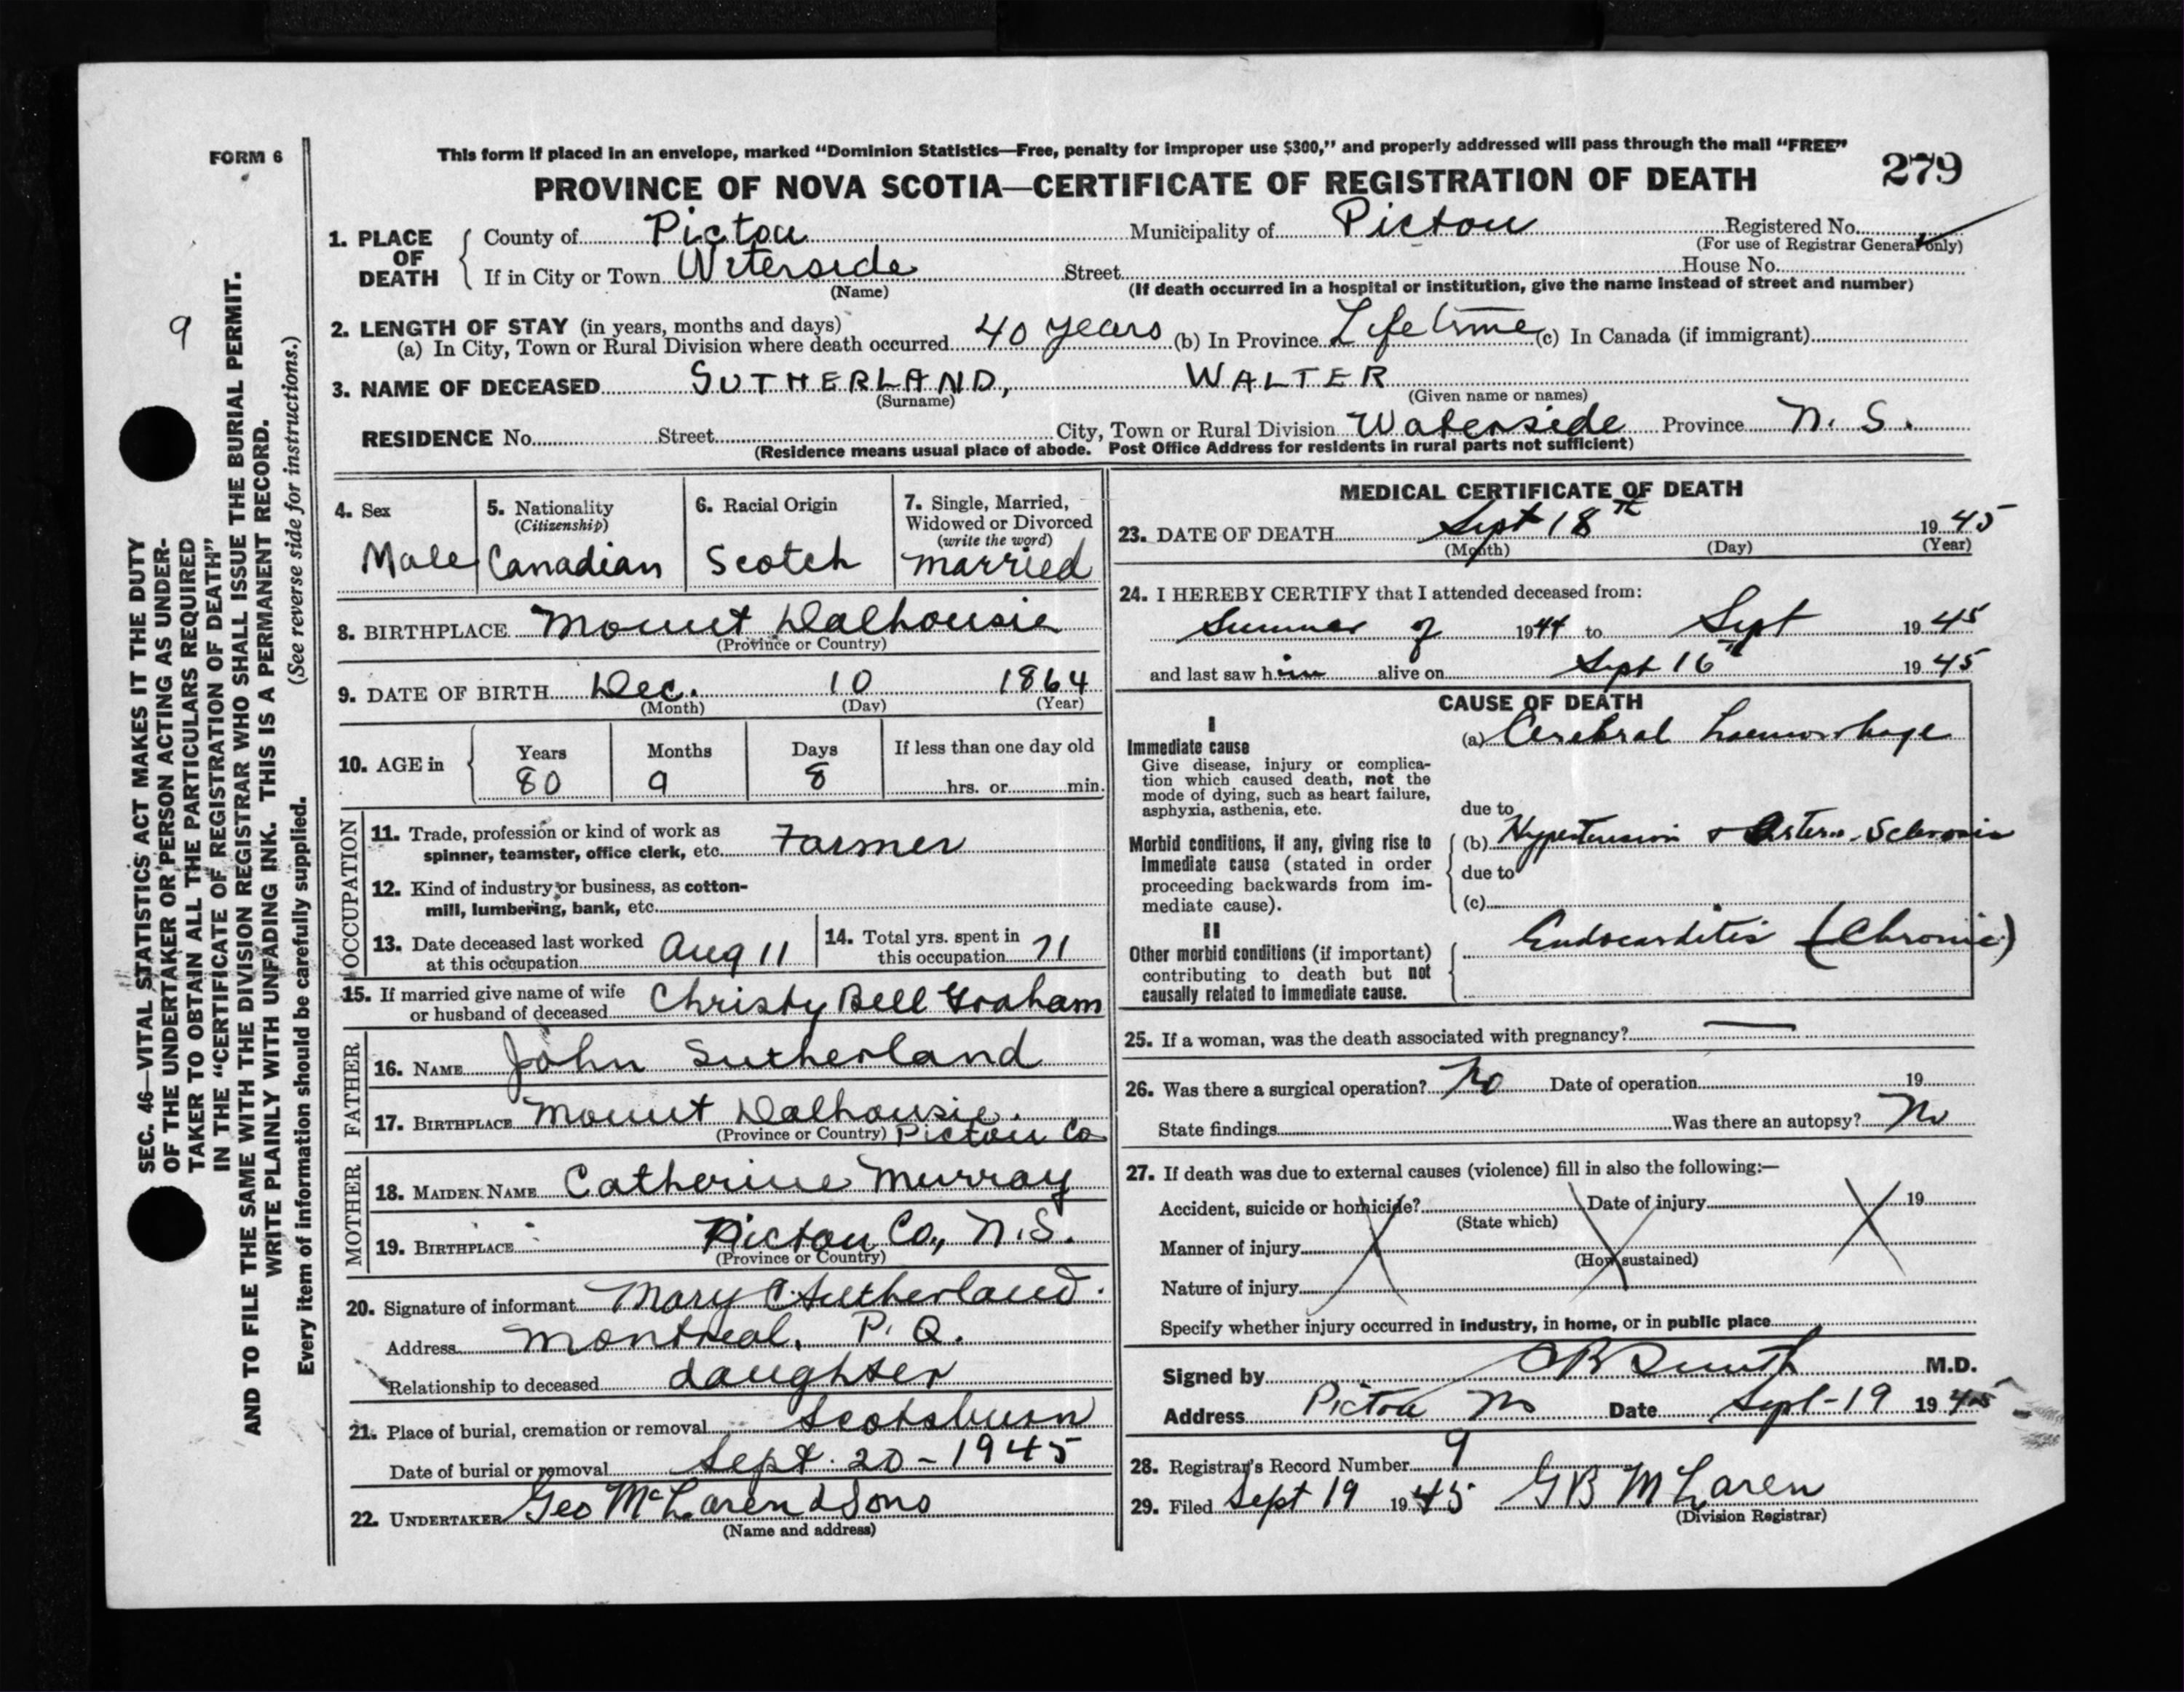 FORM 6
This form if placed in an envelope, marked "Dominion Statistics—Free, penalty for improper use $300," and properly addressed will pass through the mail "FREE"
PROVINCE OF NOVA SCOTIA—CERTIFICATE OF REGISTRATION OF DEATH
279
1. PLACE OF DEATH
County of Pictou Municipality of Pictou Registered No.
(For use of Registrar General only)
If in City or Town Waterside Street House No.
(Name) (If death occurred in a hospital or institution, give the name instead of street and number)
2. LENGTH OF STAY (in years, months and days)
(a) In City, Town or Rural Division where death occurred 40 years (b) In Province Lifetime (c) In Canada (if immigrant)
3. NAME OF DECEASED SUTHERLAND, WALTER
(Surname) (Given name or names)
RESIDENCE No. Street City, Town or Rural Division Waterside Province N. S.
(Residence means usual place of abode. Post Office Address for residents in rural parts not sufficient)
4. Sex
Male
5. Nationality
(Citizenship)
Canadian
6. Racial Origin
Scotch
7. Single, Married,
Widowed or Divorced
(write the word)
Married
8. BIRTHPLACE Mount Dalhousie
(Province or Country)
9. DATE OF BIRTH Dec. 10 1864
(Month) (Day) (Year)
10. AGE in
Years Months Days If less than one day old
80 9 8 hrs. or min.
OCCUPATION
11. Trade, profession or kind of work as
spinner, teamster, office clerk, etc. Farmer
12. Kind of industry or business, as cotton-
mill, lumbering, bank, etc.
13. Date deceased last worked
at this occupation Aug 11
14. Total yrs. spent in
this occupation 71
15. If married give name of wife
or husband of deceased Christy Bell Graham
FATHER
16. NAME John Sutherland
17. BIRTHPLACE Mount Dalhousie.
(Province or Country) Pictou Co
MOTHER
18. MAIDEN NAME Catherine Murray
19. BIRTHPLACE Pictou Co., N.S.
(Province or Country)
20. Signature of informant Mary C. Sutherland.
Address Montreal, P. Q.
Relationship to deceased daughter
21. Place of burial, cremation or removal Scotsburn
Date of burial or removal Sept. 20 - 1945
22. UNDERTAKER Geo McLaren & Sons
(Name and address)
MEDICAL CERTIFICATE OF DEATH
23. DATE OF DEATH Sept 18th 1945
(Month) (Day) (Year)
24. I HEREBY CERTIFY that I attended deceased from:
Summer of 1944 to Sept 1945
and last saw him alive on Sept 16th 1945
CAUSE OF DEATH
I
Immediate cause
Give disease, injury or complica-
tion which caused death, not the
mode of dying, such as heart failure,
asphyxia, asthenia, etc.
(a) Cerebral haemorrhage
due to
Morbid conditions, if any, giving rise to
immediate cause (stated in order
proceeding backwards from im-
mediate cause).
(b) Hypertension & Arterio-Sclerosis
due to
(c)
II
Other morbid conditions (if important)
contributing to death but not
causally related to immediate cause.
Endocarditis (Chronic)
25. If a woman, was the death associated with pregnancy? —
26. Was there a surgical operation? No Date of operation 19
State findings Was there an autopsy? No
27. If death was due to external causes (violence) fill in also the following:—
Accident, suicide or homicide? Date of injury 19
(State which)
Manner of injury
(How sustained)
Nature of injury
Specify whether injury occurred in industry, in home, or in public place
Signed by M.D.
Address Pictou NS Date Sept-19 1945
28. Registrar's Record Number 9
29. Filed Sept 19 1945 G B McLaren
(Division Registrar)
9
SEC. 46—VITAL STATISTICS' ACT MAKES IT THE DUTY
OF THE UNDERTAKER OR PERSON ACTING AS UNDER-
TAKER TO OBTAIN ALL THE PARTICULARS REQUIRED
IN THE "CERTIFICATE OF REGISTRATION OF DEATH"
AND TO FILE THE SAME WITH THE DIVISION REGISTRAR WHO SHALL ISSUE THE BURIAL PERMIT.
WRITE PLAINLY WITH UNFADING INK. THIS IS A PERMANENT RECORD.
Every item of information should be carefully supplied. (See reverse side for instructions.)